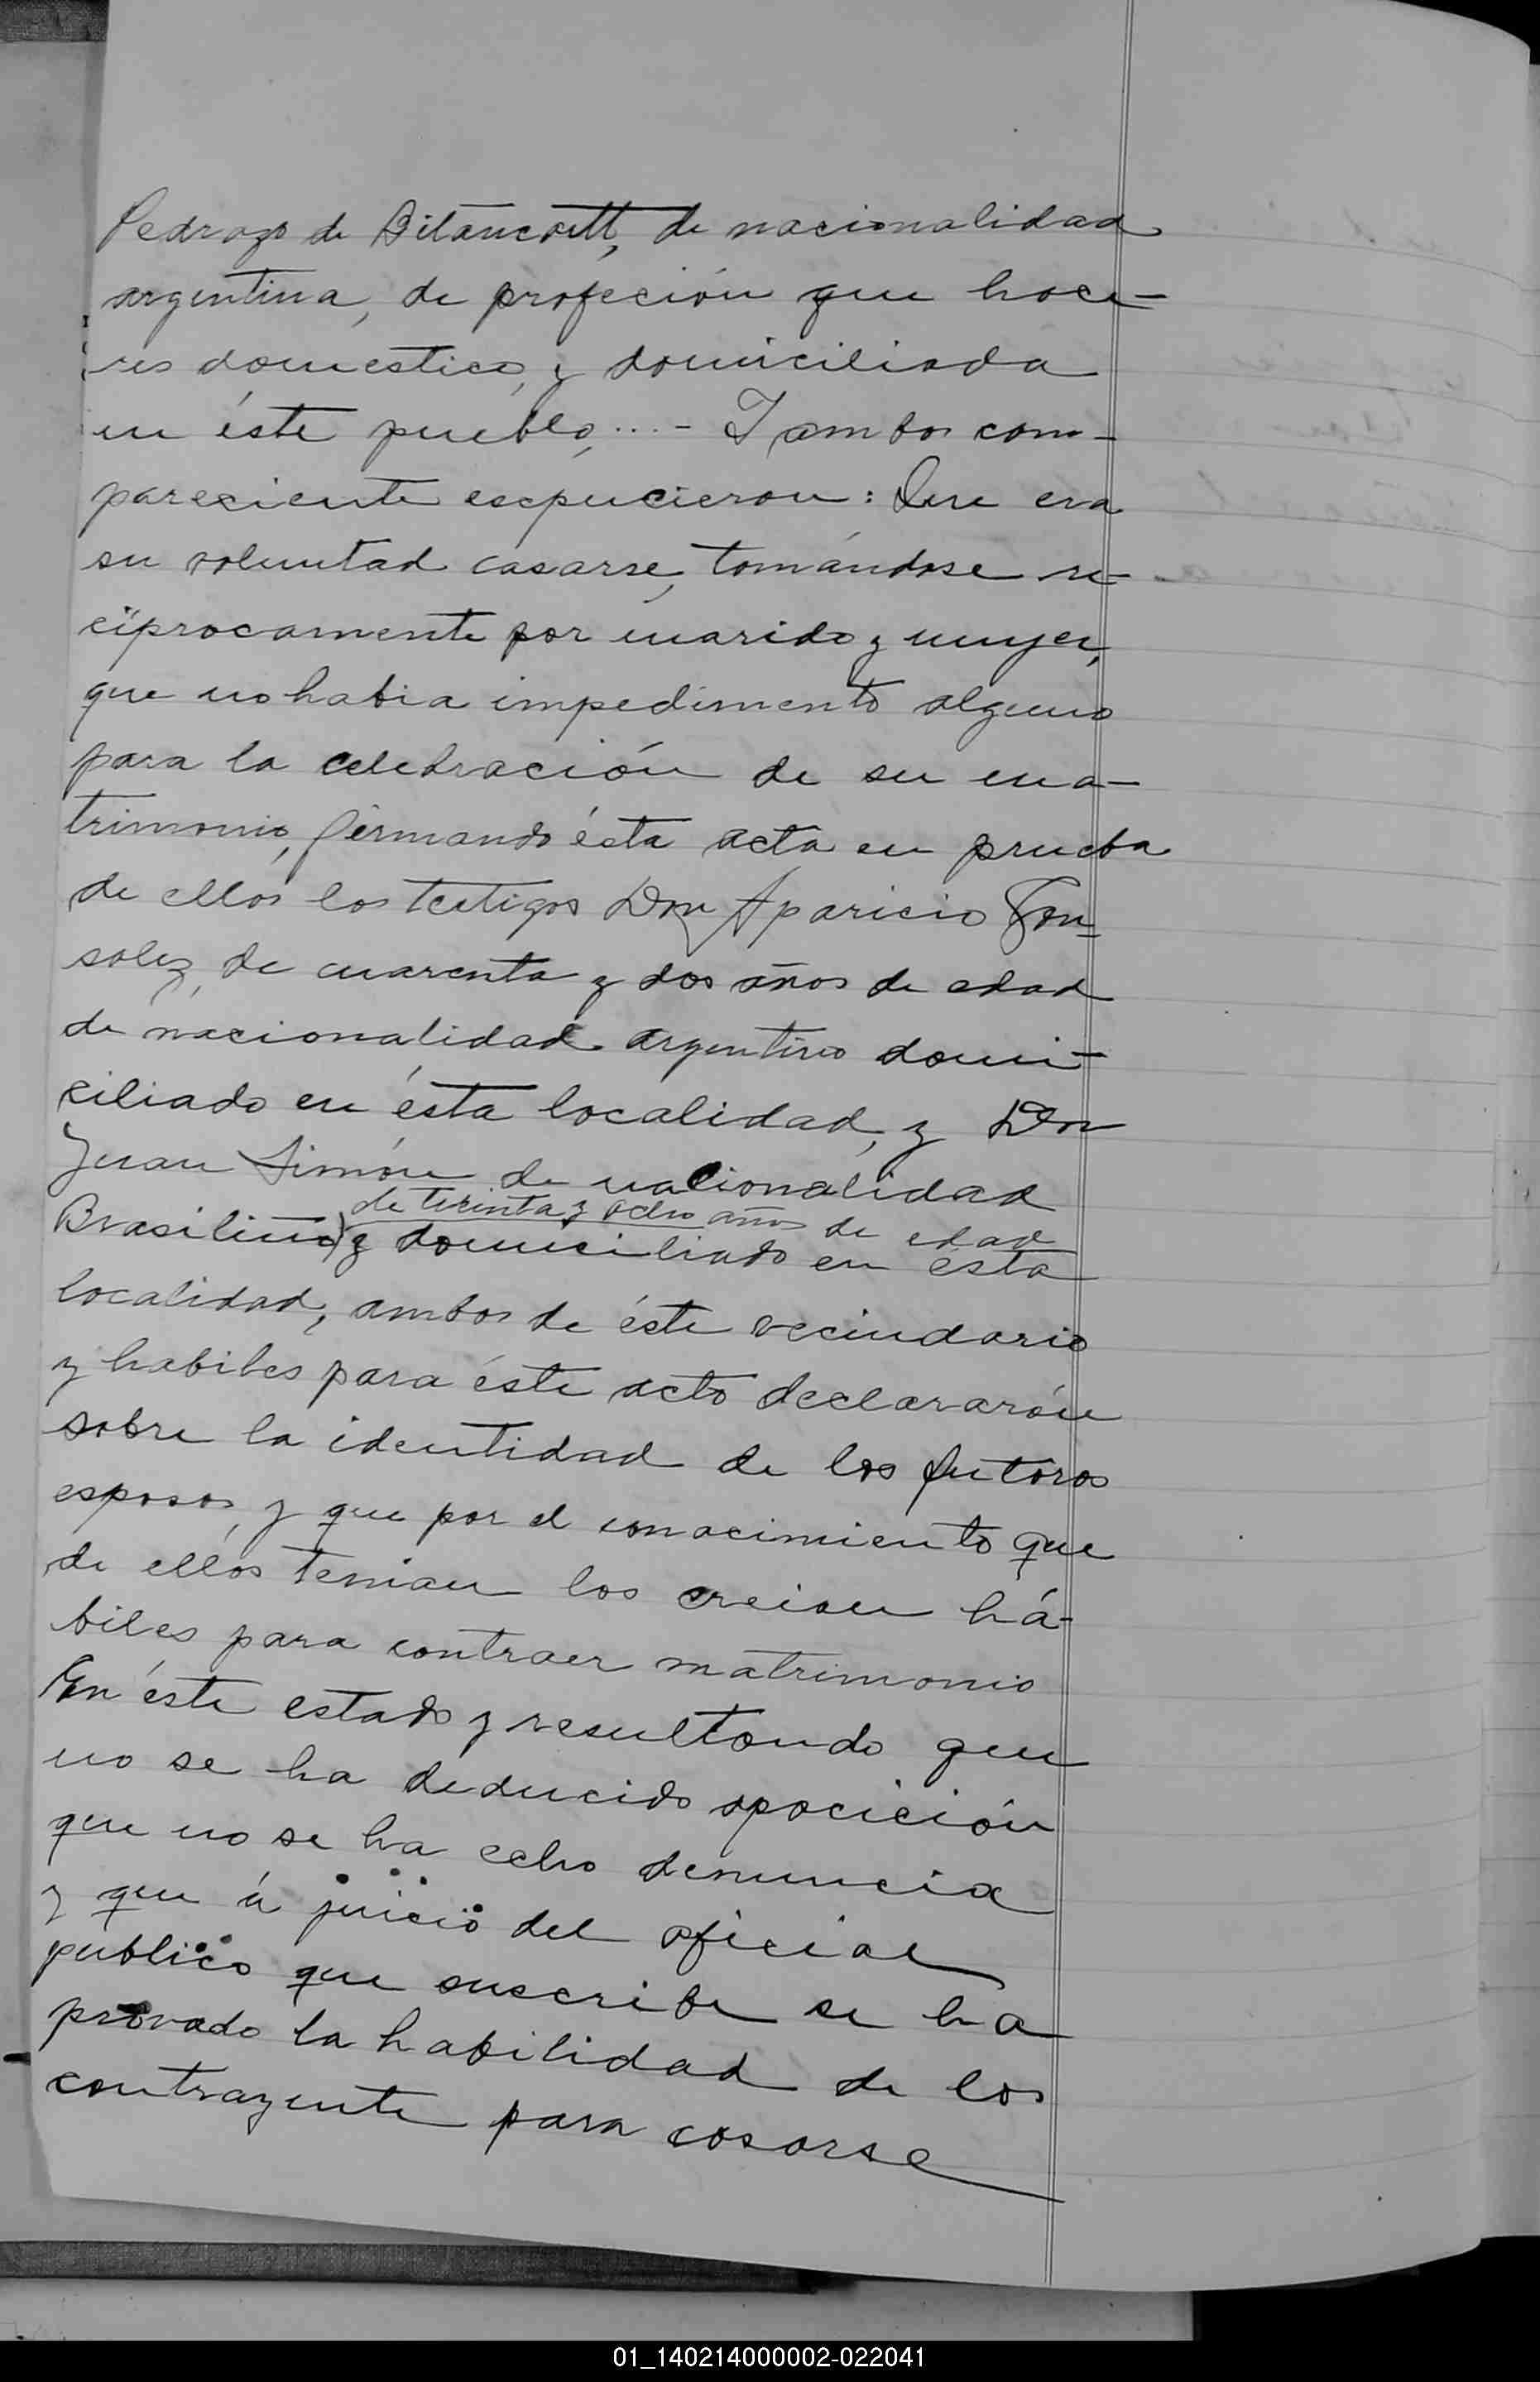 Pedrozo de Bitancortt, de nacionalidad
argentina, de profeción que hace-
res domestico, y domiciliada
en éste pueblo, ...- I ambos com-
pareciente espucieron: Que era
su voluntad casarse, tomándose re-
ciprocamente por marido y muyer,
que no habia impedimento alguno
para la celebración de su ma-
trimonio, firmando ésta acta en prueba
de ellos los testigos Don Aparicio Gon-
salez, de cuarenta y dos años de edad
de nacionalidad argentino domi-
ciliado en ésta localidad, y Don
Juan Simón de nacionalidad
de treinta y ocho años de edad
Brasilino) y domiciliado en ésta
localidad, ambos de éste vecindario
y habiles para éste acto declararón
sobre la identidad de los futoros
esposos, y que por el conocimiento que
de ellos tenian los creian há-
biles para contraer matrimonio
En éste estado y resultando que
no se ha deducido opocición
que no se ha echo denuncia
y que á juicio del oficial
publico que suscribe se ha
provado la habilidad de los
contrayente para casarse
01_140214000002-022041